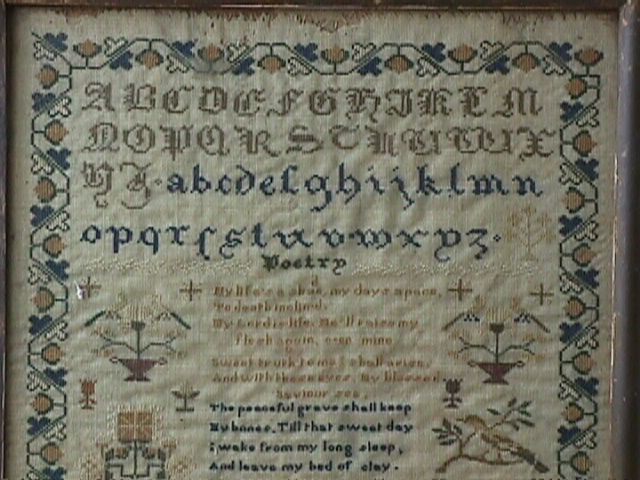 A B C D E F G H I K L M
N O P Q R S T U V W X
Y Z. a b c d e f g h i j k l m n
o p q r ſ s t u v w x y z.
Poetry
My life's a shade, my days apace,
To death inclind.
My Lord is life, He'll raise my
Flesh again, even mine
Sweet truth to me I shall arise,
And with these eyes, my blessed
Saviour see.
The peaceful grave shall keep
My bones, Till that sweet day
i wake from my long sleep,
And leave my bed of clay.